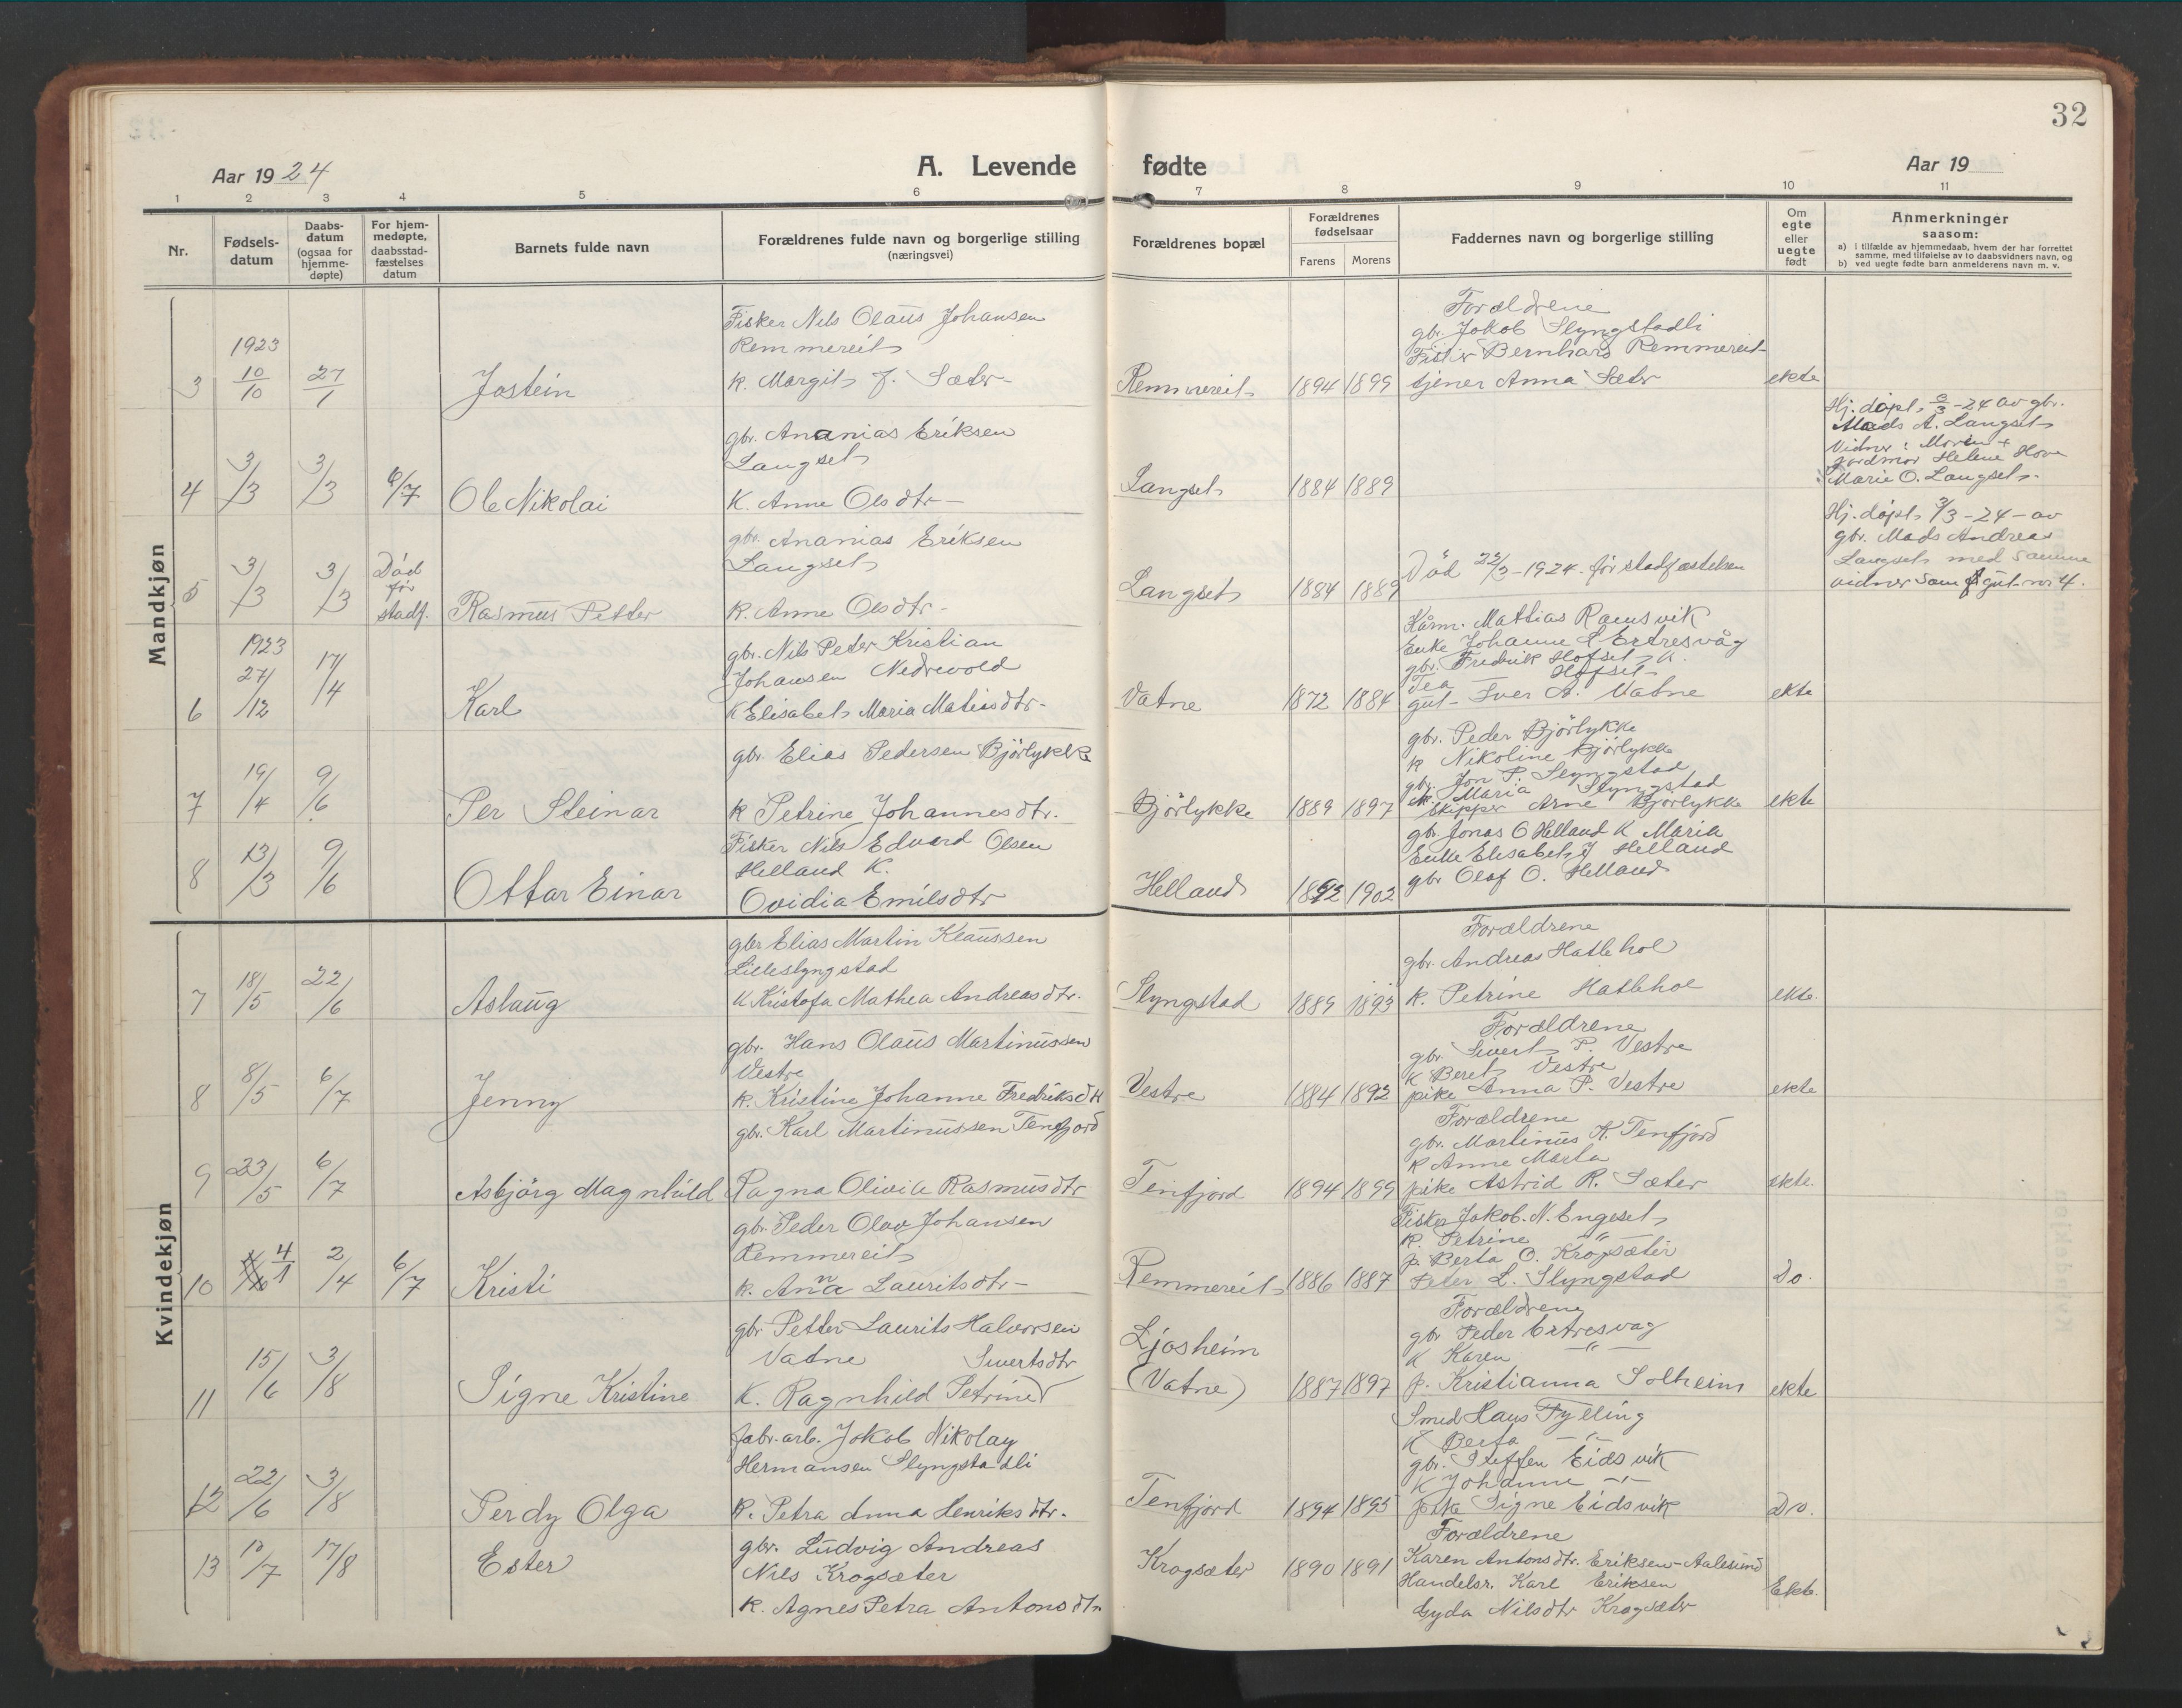 32
Aar 1924
A. Levende fødte
Aar 19
1 2 3 4 5 6 7 8 9 10 11
Nr.
Fødsels-
datum
Daabs-
datum
(ogsaa for
hjemme-
døpte)
For hjem-
medøpte,
daabsstad-
fæstelses
datum
Barnets fulde navn
Forældrenes fulde navn og borgerlige stilling
(næringsvei)
Forældrenes bopæl
Forældrenes
fødselsaar
Farens Morens
Faddernes navn og borgerlige stilling
Om
egte
eller
uegte
født
Anmerkninger
saasom:
a) i tilfælde av hjemmedaab, hvem der har forrettet
samme, med tilføielse av to daabsvidners navn, og
b) ved uegte fødte barn anmelderens navn m. v.
Mandkjøn
3
1923
10/10
27/1
Jostein
Fisker Nils Olaus Johansen
Remmereit
k. Margit J. Sæter
Remmereit
1894 1899
Forældrene
gbr. Jakob Slyngstadli
Fisker Bernhard Remmereit
tjener Anna Sæter
ekte
4
3/3
3/3
6/7
Ole Nikolai
gbr. Ananias Eriksen
Langset
K. Anne Olsdtr
Langset
1884 1889
Hj. døpt 3/3-24 av gbr.
Mads A. Langset
Vidner: Moren +
jordmor Helene Hove
Marie O. Langset
5
3/3
3/3
Død
før
stadf.
Rasmus Petter
gbr. Ananias Eriksen
Langset
K. Anne Olsdtr
Langset
1884 1889
Død 22/3-1924. før stadfæstelsen
Hj. døpt 3/3-24 - av
gbr. Mads Andreas
Langset med samme
vidner som gut nr 4.
6
1923
27/12
17/4
Karl
gbr. Nils Peter Kristian
Johansen Nedrevold
K Elisabet Maria Matiasdtr
Vatne
1872 1884
Kårm. Mattias Ramsvik
Enke Johanne Ertresvåg
gbr. Fredrik Hofset K.
Tea Hofset
gut Iver A. Vatne
ekte
7
19/4
9/6
Per Steinar
gbr. Elias Pedersen Bjørlykke
k Petrine Johannesdtr.
Bjørlykke
1889 1897
gbr. Peder Bjørlykke
k Nikoline Bjørlykke
gbr. Jon P. Slyngstad
k. Maria Slyngstad
skipper Arne Bjørlykke
ekte
8
13/3
9/6
Ottar Einar
Fisker Nils Edvard Olsen
Helland K.
Ovidia Emilsdtr
Helland
1892 1902
gbr Jonas O Helland K Maria
Enke Elisabet J Helland
gbr Olaf O. Helland
Kvindekjøn
7
18/5
22/6
Aslaug
gbr Elias Martin Klaussen
Lilleslyngstad
K Kristofa Mathea Andreasdtr.
Slyngstad
1889 1893
Forældrene
gbr. Andreas Hatlehol
k. Petrine Hatlehol
ekte.
8
8/5
6/7
Jenny
gbr. Hans Olaus Martinussen
Vestre
k. Kristine Johanne Fredriksdtr
Vestre
1884 1892
Forældrene
gbr. Sivert P. Vestre
K Beret Vestre
pike Anna P. Vestre
ekte
9
23/5
6/7
Asbjörg Magnhild
gbr. Karl Martinussen Tenfjord
Ragna Olivia Rasmusdtr
Tenfjord
1894 1899
Forældrene
gbr. Martinus K. Tenfjord
k Anne Marta
pike Astrid R. Sæter
ekte.
10
4/1
2/4
6/7
Kristi
gbr. Peder Olav Johansen
Remmereit
k. Anna Lauritsdtr
Remmereit
1886 1887
Fisker Jakob. N. Engeset
k. Petrine —"—
p. Berta O. Krogsæter
Peter L. Slyngstad
Do.
11
15/6
3/8
Signe Kristine
gbr Petter Laurits Halvorsen
Vatne Sivertsdtr
K. Ragnhild Petrine
Ljosheim
(Vatne)
1887 1897
Forældrene
gbr Peder Ertresvag
K Karen —"—
p. Kristianna Solheim
ekte
12
22/6
3/8
Perdy Olga
fabr.arb. Jakob Nikolay
Hermansen Slyngstadli
k. Petra Anna Henriksdtr.
Tenfjord
1894 1895
Smed Hans Fylling
K Berta —"—
gbr. Steffen Eidsvik
K Johanne —"—
pike Signe Eidsvik
Do.
13
17/8
Ester
gbr. Ludvig Andreas
Nils Krogsæter
k. Agnes Petra Antonsdtr
Krogsæter
1890 1891
Forældrene
Karen Antonsdtr. Eriksen - Aalesund
Handelsr. Karl Eriksen
Gyda Nilsdtr Krogsæter
Ekte.